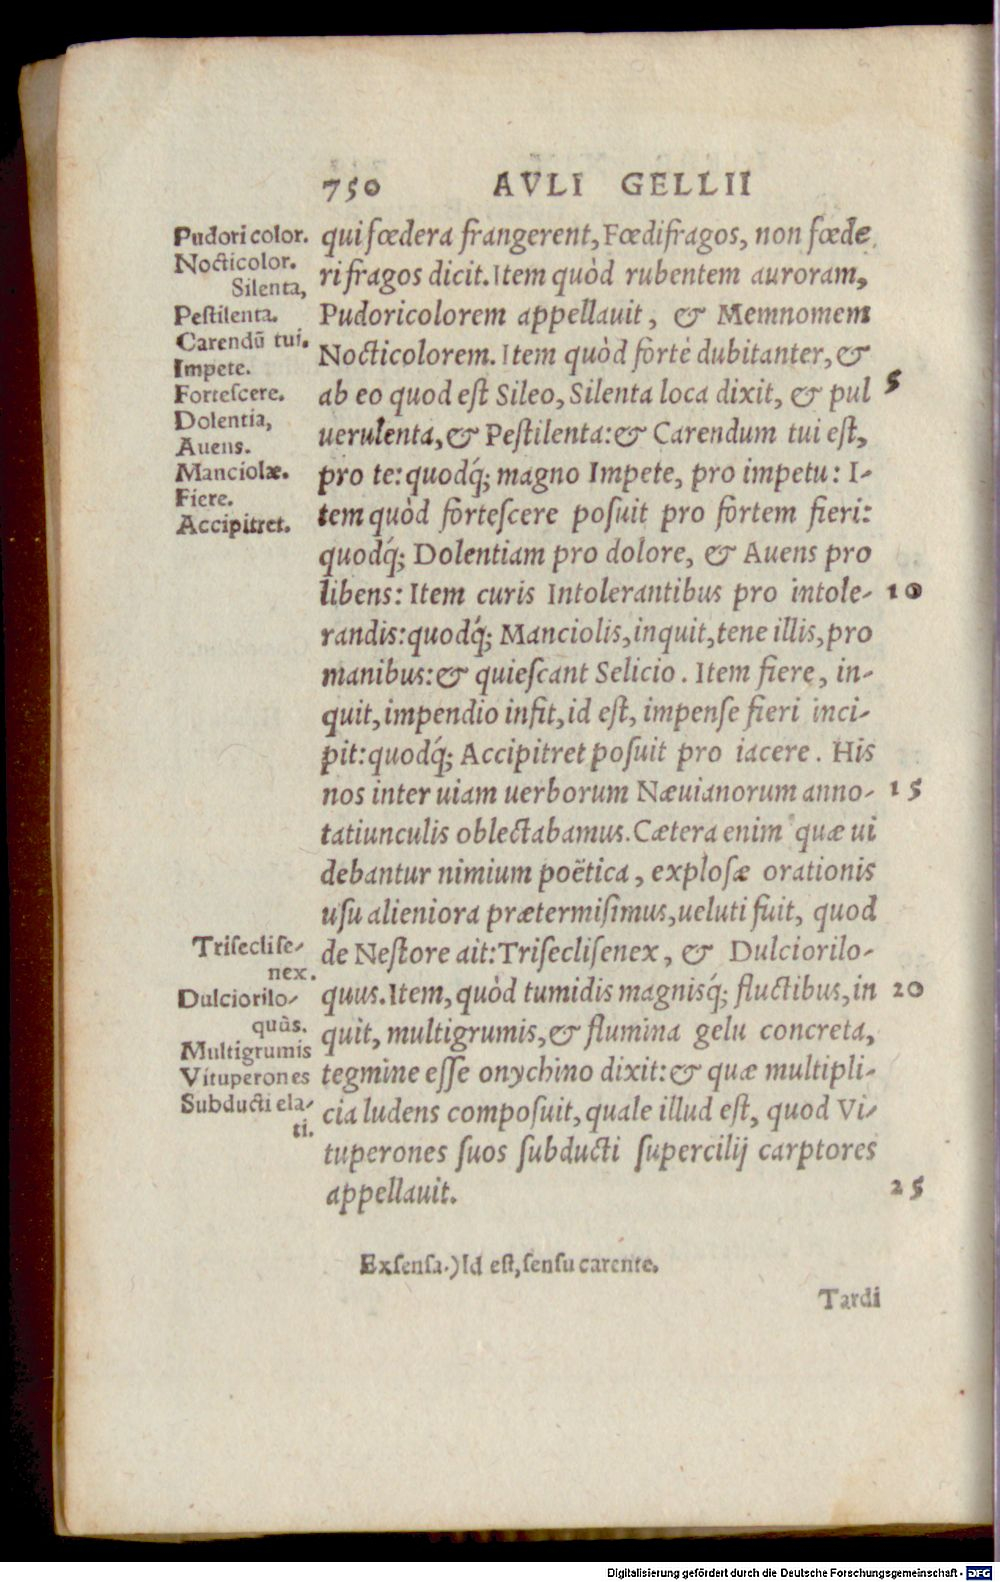 750 AVLI GELLII
Pudoricolor.
Nocticolor.
Silenta,
Pestilenta.
Carendũ tui.
Impete.
Fortescere.
Dolentia,
Auens.
Manciolæ.
Fiere.
Accipitret.
qui fœdera frangerent, Fœdifragos, non fœde
rifragos dicit. Item quòd rubentem auroram,
Pudoricolorem appellauit, & Memnomem
Nocticolorem. Item quòd fortè dubitanter, &
ab eo quod est Sileo, Silenta loca dixit, & pul 5
uerulenta, & Pestilenta: & Carendum tui est,
pro te: quodq́; magno Impete, pro impetu: I-
tem quòd fortescere posuit pro fortem fieri:
quodq́; Dolentiam pro dolore, & Auens pro
libens: Item curis Intolerantibus pro intole- 10
randis: quodq́; Manciolis, inquit, tene illis, pro
manibus: & quiescant Selicio. Item fiere, in-
quit, impendio infit, id est, impense fieri inci-
pit: quodq́; Accipitret posuit pro iacere. His
nos inter uiam uerborum Næuianorum anno- 15
tatiunculis oblectabamus. Cætera enim quæ ui
debantur nimium poëtica, explosæ orationis
usu alieniora prætermisimus, ueluti fuit, quod
de Nestore ait: Triseclisenex, & Dulciorilo-
quus. Item, quòd tumidis magnisq́; fluctibus, in 20
quit, multigrumis, & flumina gelu concreta,
tegmine esse onychino dixit: & quæ multipli-
cia ludens composuit, quale illud est, quod Vi-
tuperones suos subducti supercilij carptores
appellauit. 25
Triseclise-
nex.
Dulciorilo-
quùs.
Multigrumis
Vituperones
Subducti ela-
ti.
Exsensa.) Id est, sensu carente.
Tardi
Digitalisierung gefördert durch die Deutsche Forschungsgemeinschaft - DFG